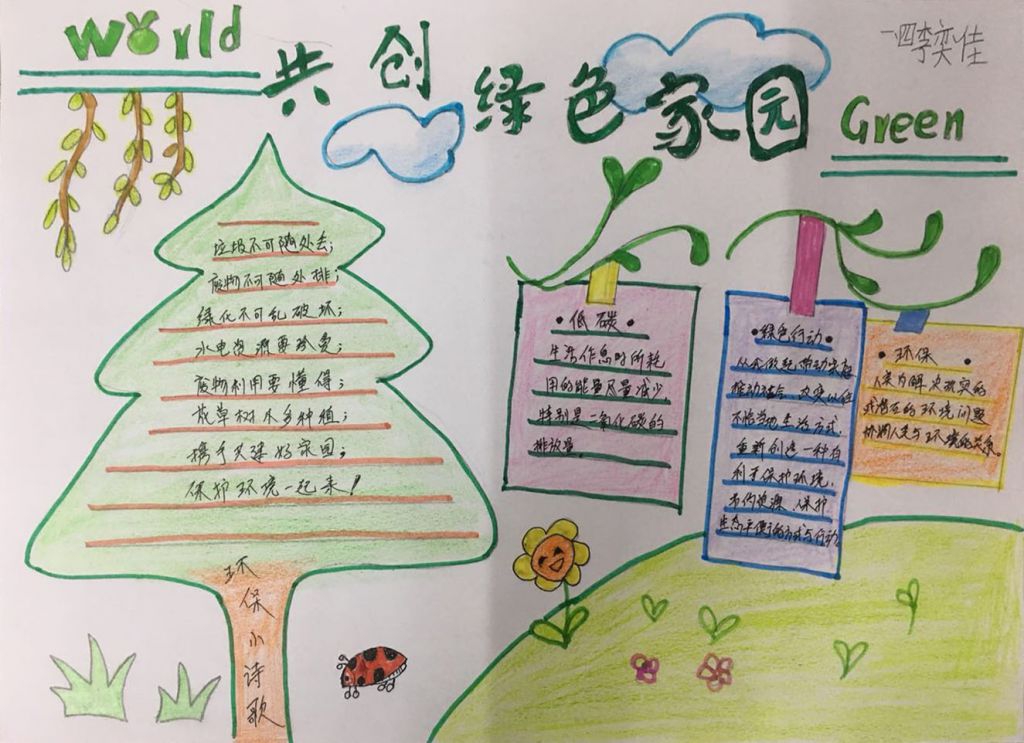 World
共创绿色家园
Green
垃圾不可随处去;
废物不可随处排;
绿化不可乱破坏;
水电资源要珍爱;
废物利用要懂得;
花草树木多种植;
携手共建好家园;
保护环境一起来!
环保小诗歌
•低碳•
生活作息时所耗
用的能量尽量减少
特别是二氧化碳的
排放量
•绿色行动•
不恰当的生活方式,
重新创造一种有
利于保护环境,
节约资源、保护
生态平衡的方式与行动
•环保•
人类为解决现实的
或潜在的环境问题
协调人类与环境的关系。